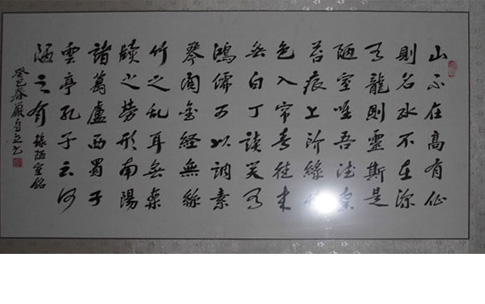 山不在高有仙
則名水不在深
有龍則靈斯是
陋室唯吾德馨
苔痕上階綠草
色入帘青往来
無白丁談笑有
鴻儒可以調素
琴閱金經無絲
竹之亂耳無案
牘之勞形南陽
諸葛廬西蜀子
雲亭孔子云何
陋之有 錄陋室銘
癸巳春